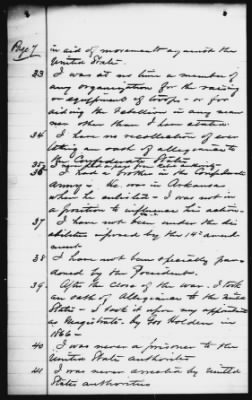 Page 7
in aid of movements against the
United States
33 I was at no time a member of
any organization for the raising
or equipment of troops – or for
aiding the rebellion in any man
ner other than I have stated
34. I have no recollection of ever
taking an oath of allegiance to
the Confederate States
35.
36. I had a brother in the Confederate
Army – he was in Arkansas
when he enlisted – I was not in
a position to influence his action.
37 I have not been under the dis
abilities imposed by the 14th amend
ment
38 I have not been specially par
doned by the President.
39. After the close of the war. I took
an oath of Allegiance to the United
States – I took it upon my appointment
as Magistrate by Gov Holden in
186
40 I was never a prisoner to the
United States authorities
41 I was never arrested by United
States authorities